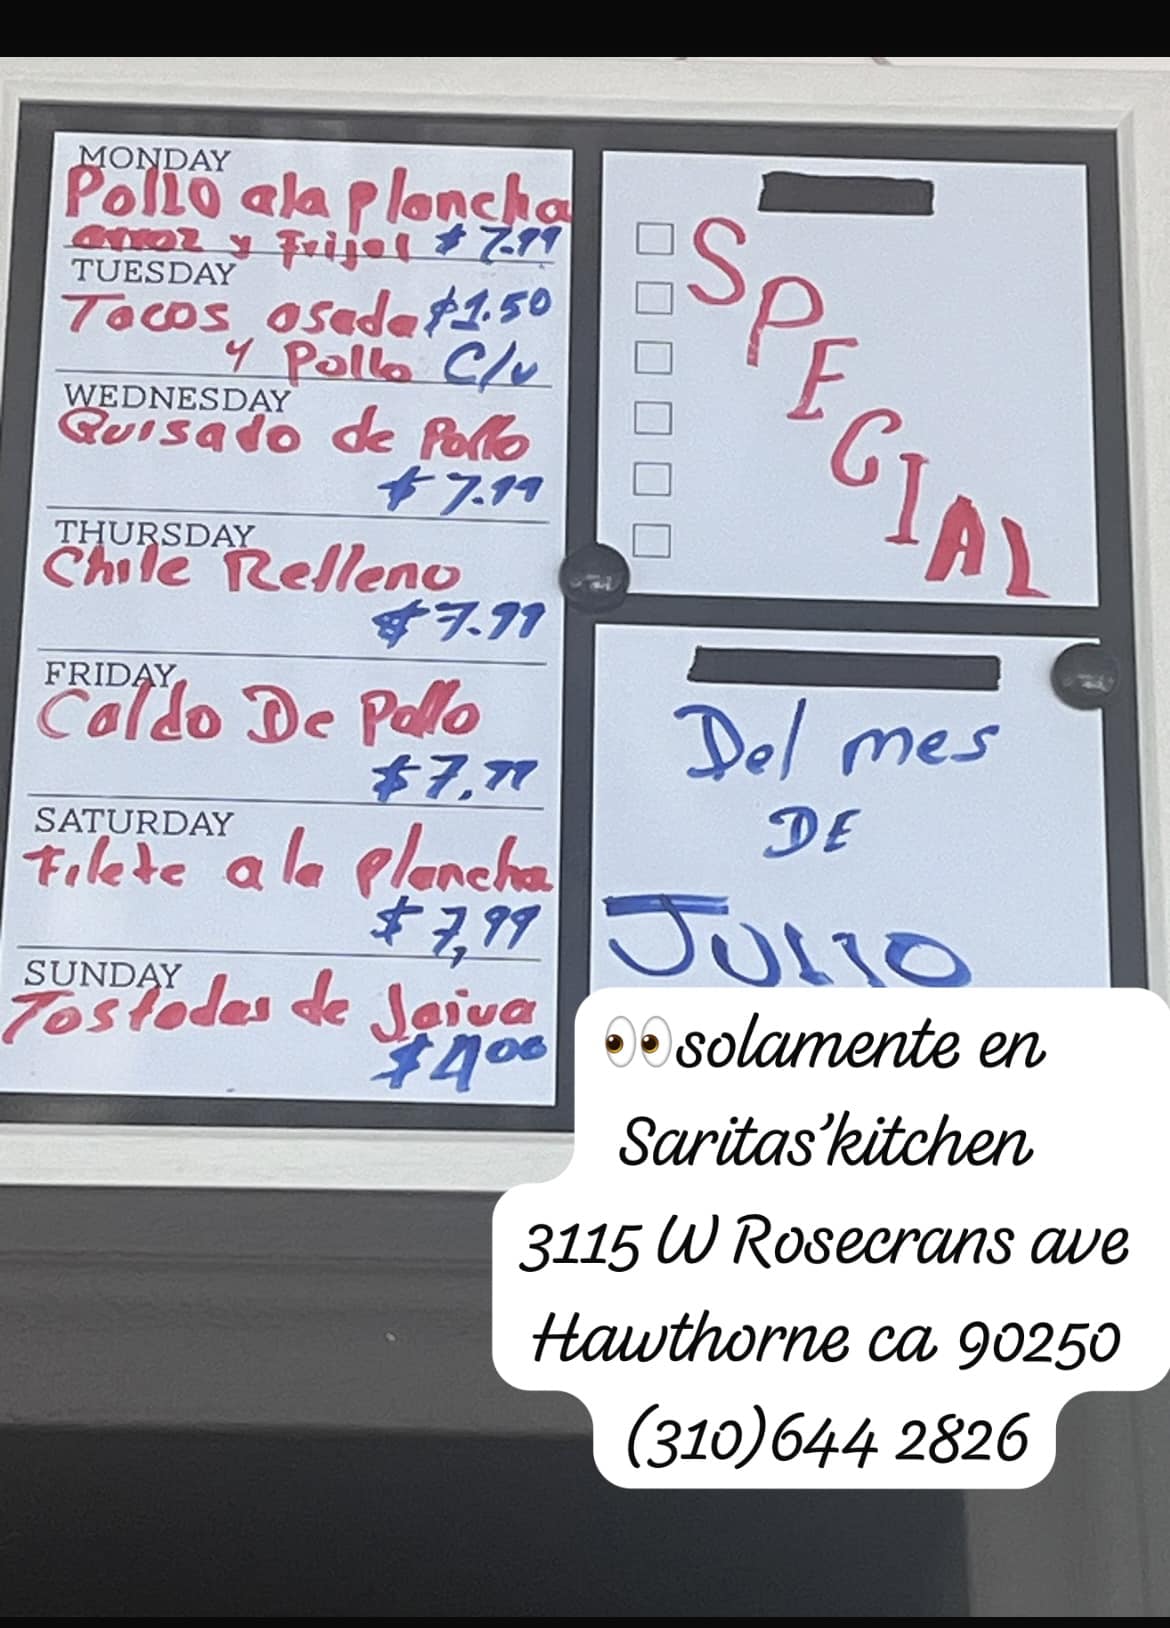 MONDAY
Pollo ala plancha
arroz y Frijol $7.99
TUESDAY
Tacos asada $1.50
y Pollo C/u
WEDNESDAY
Guisado de Pollo
$7.99
THURSDAY
Chile Relleno
$7.99
FRIDAY
Caldo De Pollo
$7.99
SATURDAY
Filete a la plancha
$7,99
SUNDAY
Tostadas de Jaiva
$4.00
SPECIAL
Del mes
DE
JULIO
👀solamente en
Saritas’kitchen
3115 W Rosecrans ave
Hawthorne ca 90250
(310)644 2826